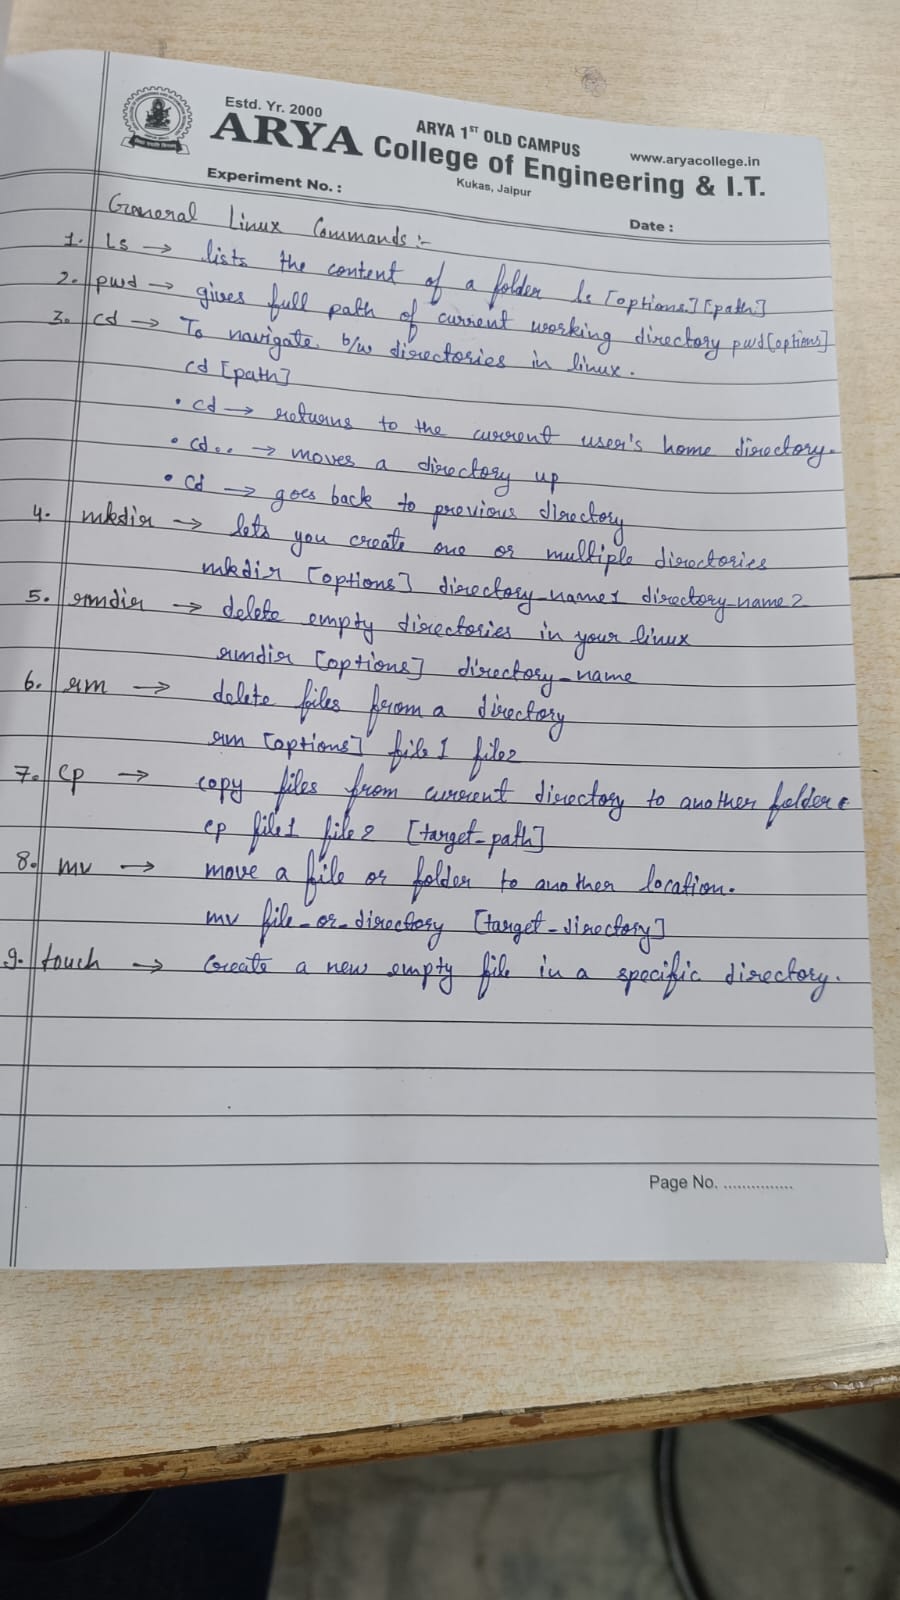 Estd. Yr. 2000
ARYA 1ST OLD CAMPUS
www.aryacollege.in
ARYA College of Engineering & I.T.
Kukas, Jaipur
Experiment No. :
Date :
General Linux Commands :-
1. Ls → lists the content of a folder ls [options] [path]
2. pwd → gives full path of current working directory pwd [options]
3. cd → To navigate b/w directories in linux.
cd [path]
• cd → returns to the current user's home directory.
• cd.. → moves a directory up
• cd → goes back to previous directory
4. mkdir → lets you create one or multiple directories
mkdir [options] directory_name1 directory_name2
5. rmdir → delete empty directories in your linux
rmdir [options] directory_name
6. rm → delete files from a directory
rm [options] file1 file2
7. cp → copy files from current directory to another folder.
cp file1 file2 [target_path]
8. mv → move a file or folder to another location.
mv file_or_directory [target_directory]
9. touch → Create a new empty file in a specific directory.
Page No. ...............